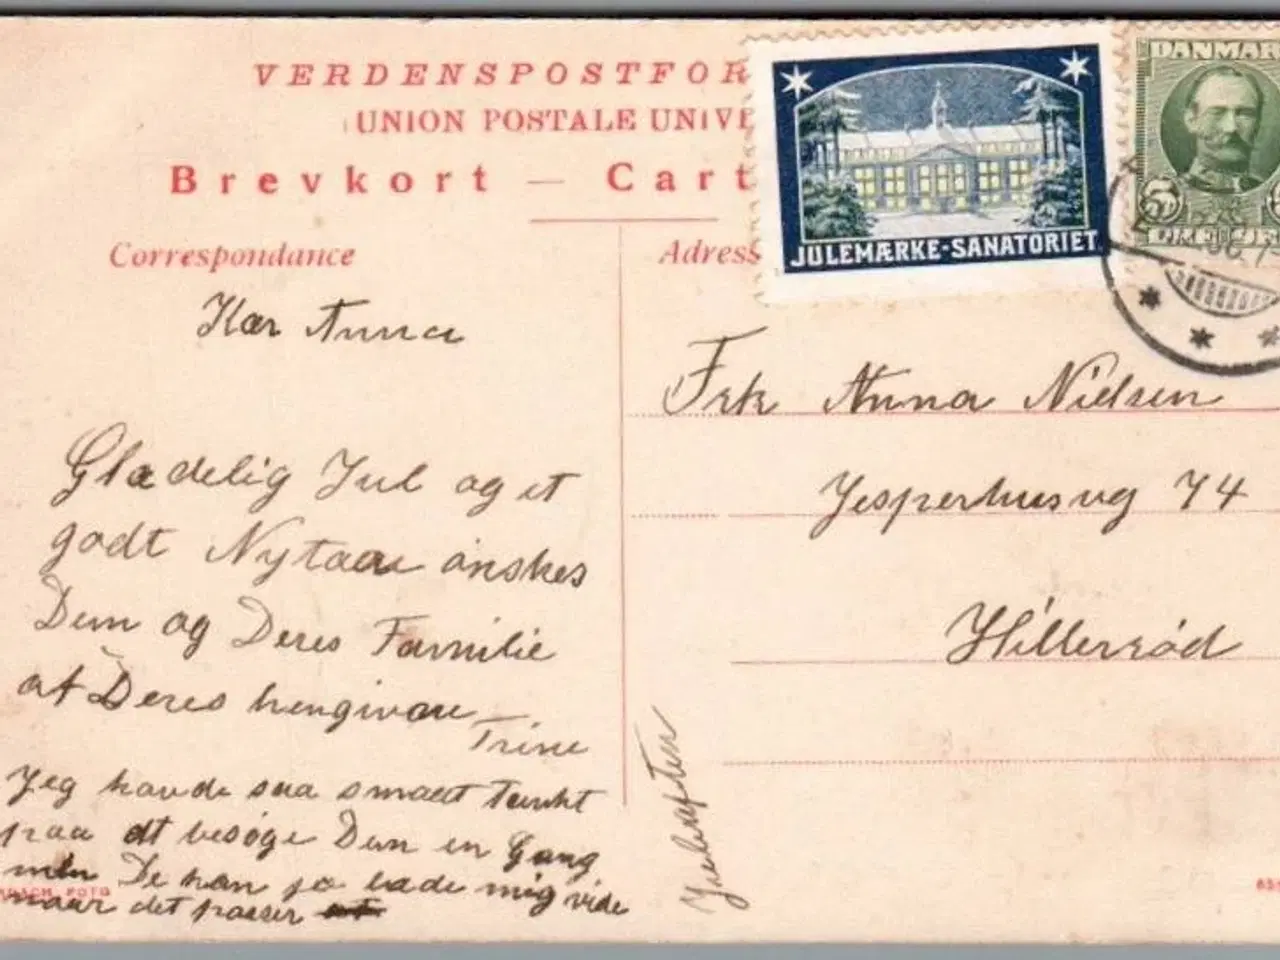 VERDENSPOSTFOR
UNION POSTALE UNIVE
Brevkort — Cart
Correspondance
Adress
JULEMÆRKE-SANATORIET
DANMAR
5
Kær Anna
Glædelig Jul og et
godt Nytaar ønskes
Dem og Deres Familie
af Deres hengivne
Trine
Jeg havde saa smaat tænkt
paa at besøge Dem en Gang
men De kan jo lade mig vide
naar det passer
Frk Anna Nielsen
Jespershusvej 74
Hillerød
Juleaften
FOTO